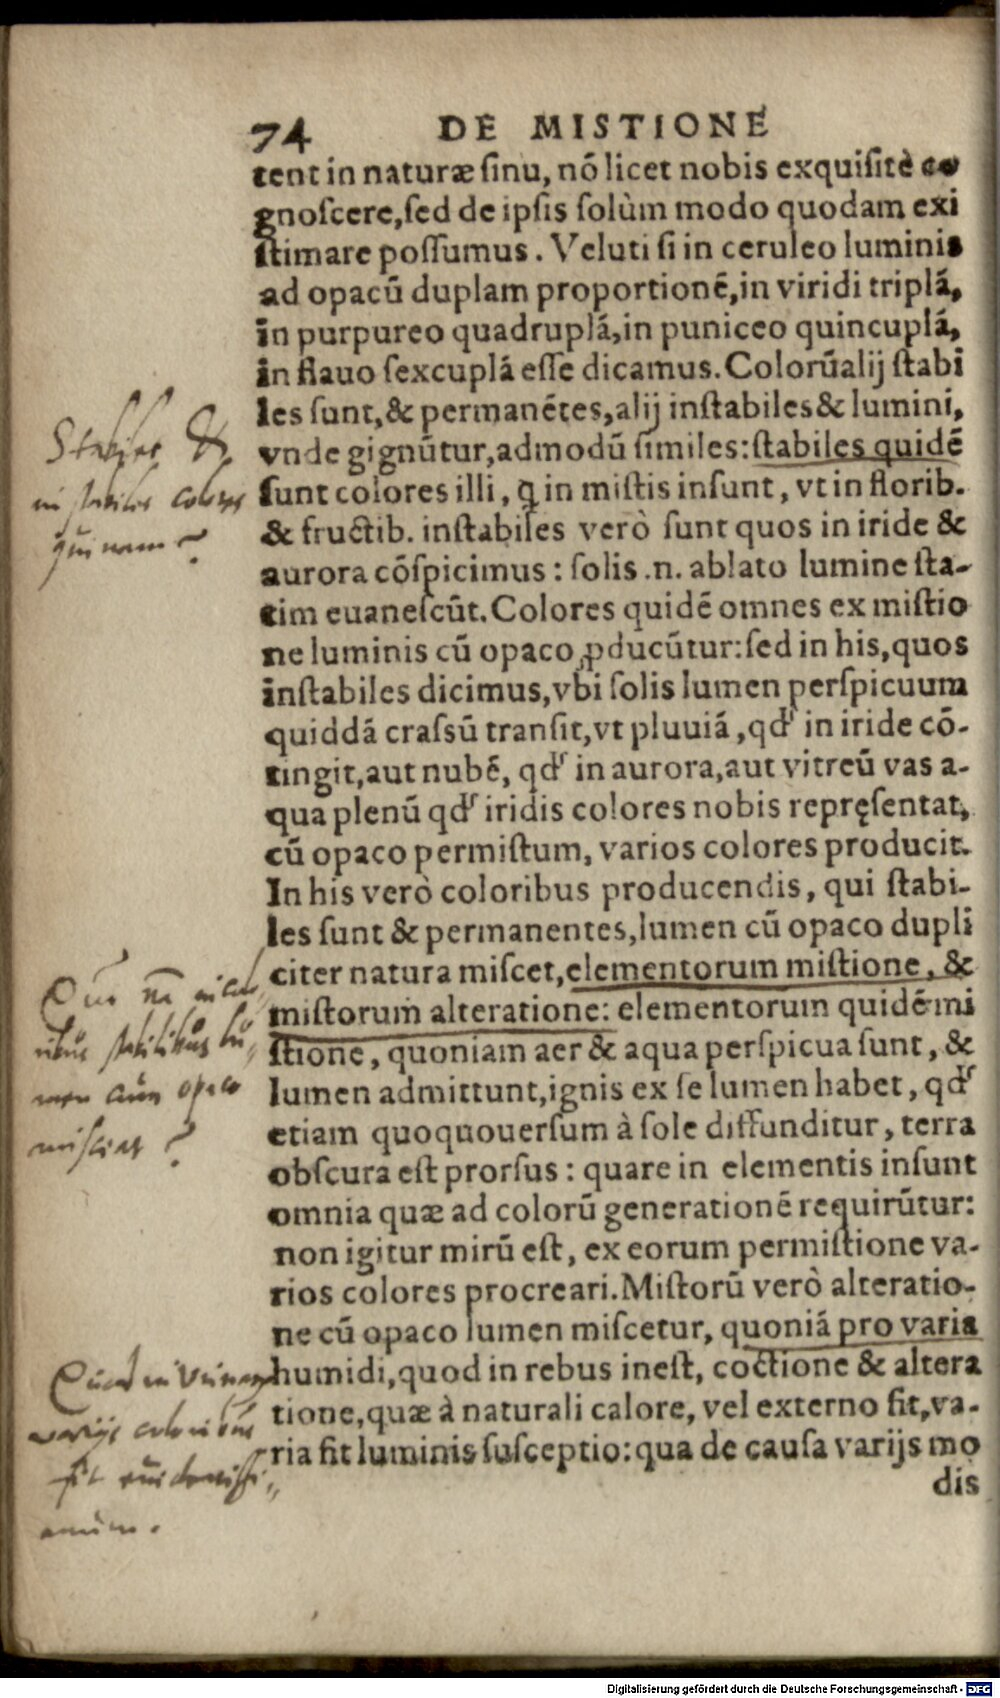 74 DE MISTIONE
tent in naturæ ſinu, nō licet nobis exquiſitè co
gnoſcere, ſed de ipſis ſolùm modo quodam exi
ſtimare poſſumus. Veluti ſi in ceruleo luminis
ad opacū duplam proportionē, in viridi triplā,
in purpureo quadruplā, in puniceo quincuplā,
in flauo ſexcuplā eſſe dicamus. Colorū alij ſtabi
les ſunt, & permanētes, alij inſtabiles & lumini,
vnde gignūtur, admodū ſimiles: ſtabiles quidē
ſunt colores illi, q̨ in miſtis inſunt, vt in florib.
& fructib. inſtabiles verò ſunt quos in iride &
aurora cōſpicimus: ſolis .n. ablato lumine ſta-
tim euaneſcūt. Colores quidē omnes ex miſtio
ne luminis cū opaco ꝓducūtur: ſed in his, quos
inſtabiles dicimus, vbi ſolis lumen perſpicuum
quiddā craſſū tranſit, vt pluuiā, qd' in iride cō-
tingit, aut nubē, qd' in aurora, aut vitreū vas a-
qua plenū qd' iridis colores nobis repręſentat,
cū opaco permiſtum, varios colores producit.
In his verò coloribus producendis, qui ſtabi-
les ſunt & permanentes, lumen cū opaco dupli
citer natura miſcet, elementorum miſtione, &
miſtorum alteratione: elementorum quidē mi
ſtione, quoniam aer & aqua perſpicua ſunt, &
lumen admittunt, ignis ex ſe lumen habet, qd'
etiam quoquouerſum à ſole diffunditur, terra
obſcura eſt prorſus: quare in elementis inſunt
omnia quæ ad colorū generationē requirūtur:
non igitur mirū eſt, ex eorum permiſtione va-
rios colores procreari. Miſtorū verò alteratio-
ne cū opaco lumen miſcetur, quoniā pro varia
humidi, quod in rebus ineſt, coctione & altera
tione, quæ à naturali calore, vel externo fit, va-
ria fit luminis ſuſceptio: qua de cauſa varijs mo
dis
Stabiles &
instabiles colores
quinam?
coloribus stabilibus lu,,
men cum opaco
misceat?
Quod in Vrinarum
varijs coloribus
fit euidentissi,,
mum.
Digitalisierung gefördert durch die Deutsche Forschungsgemeinschaft - DFG